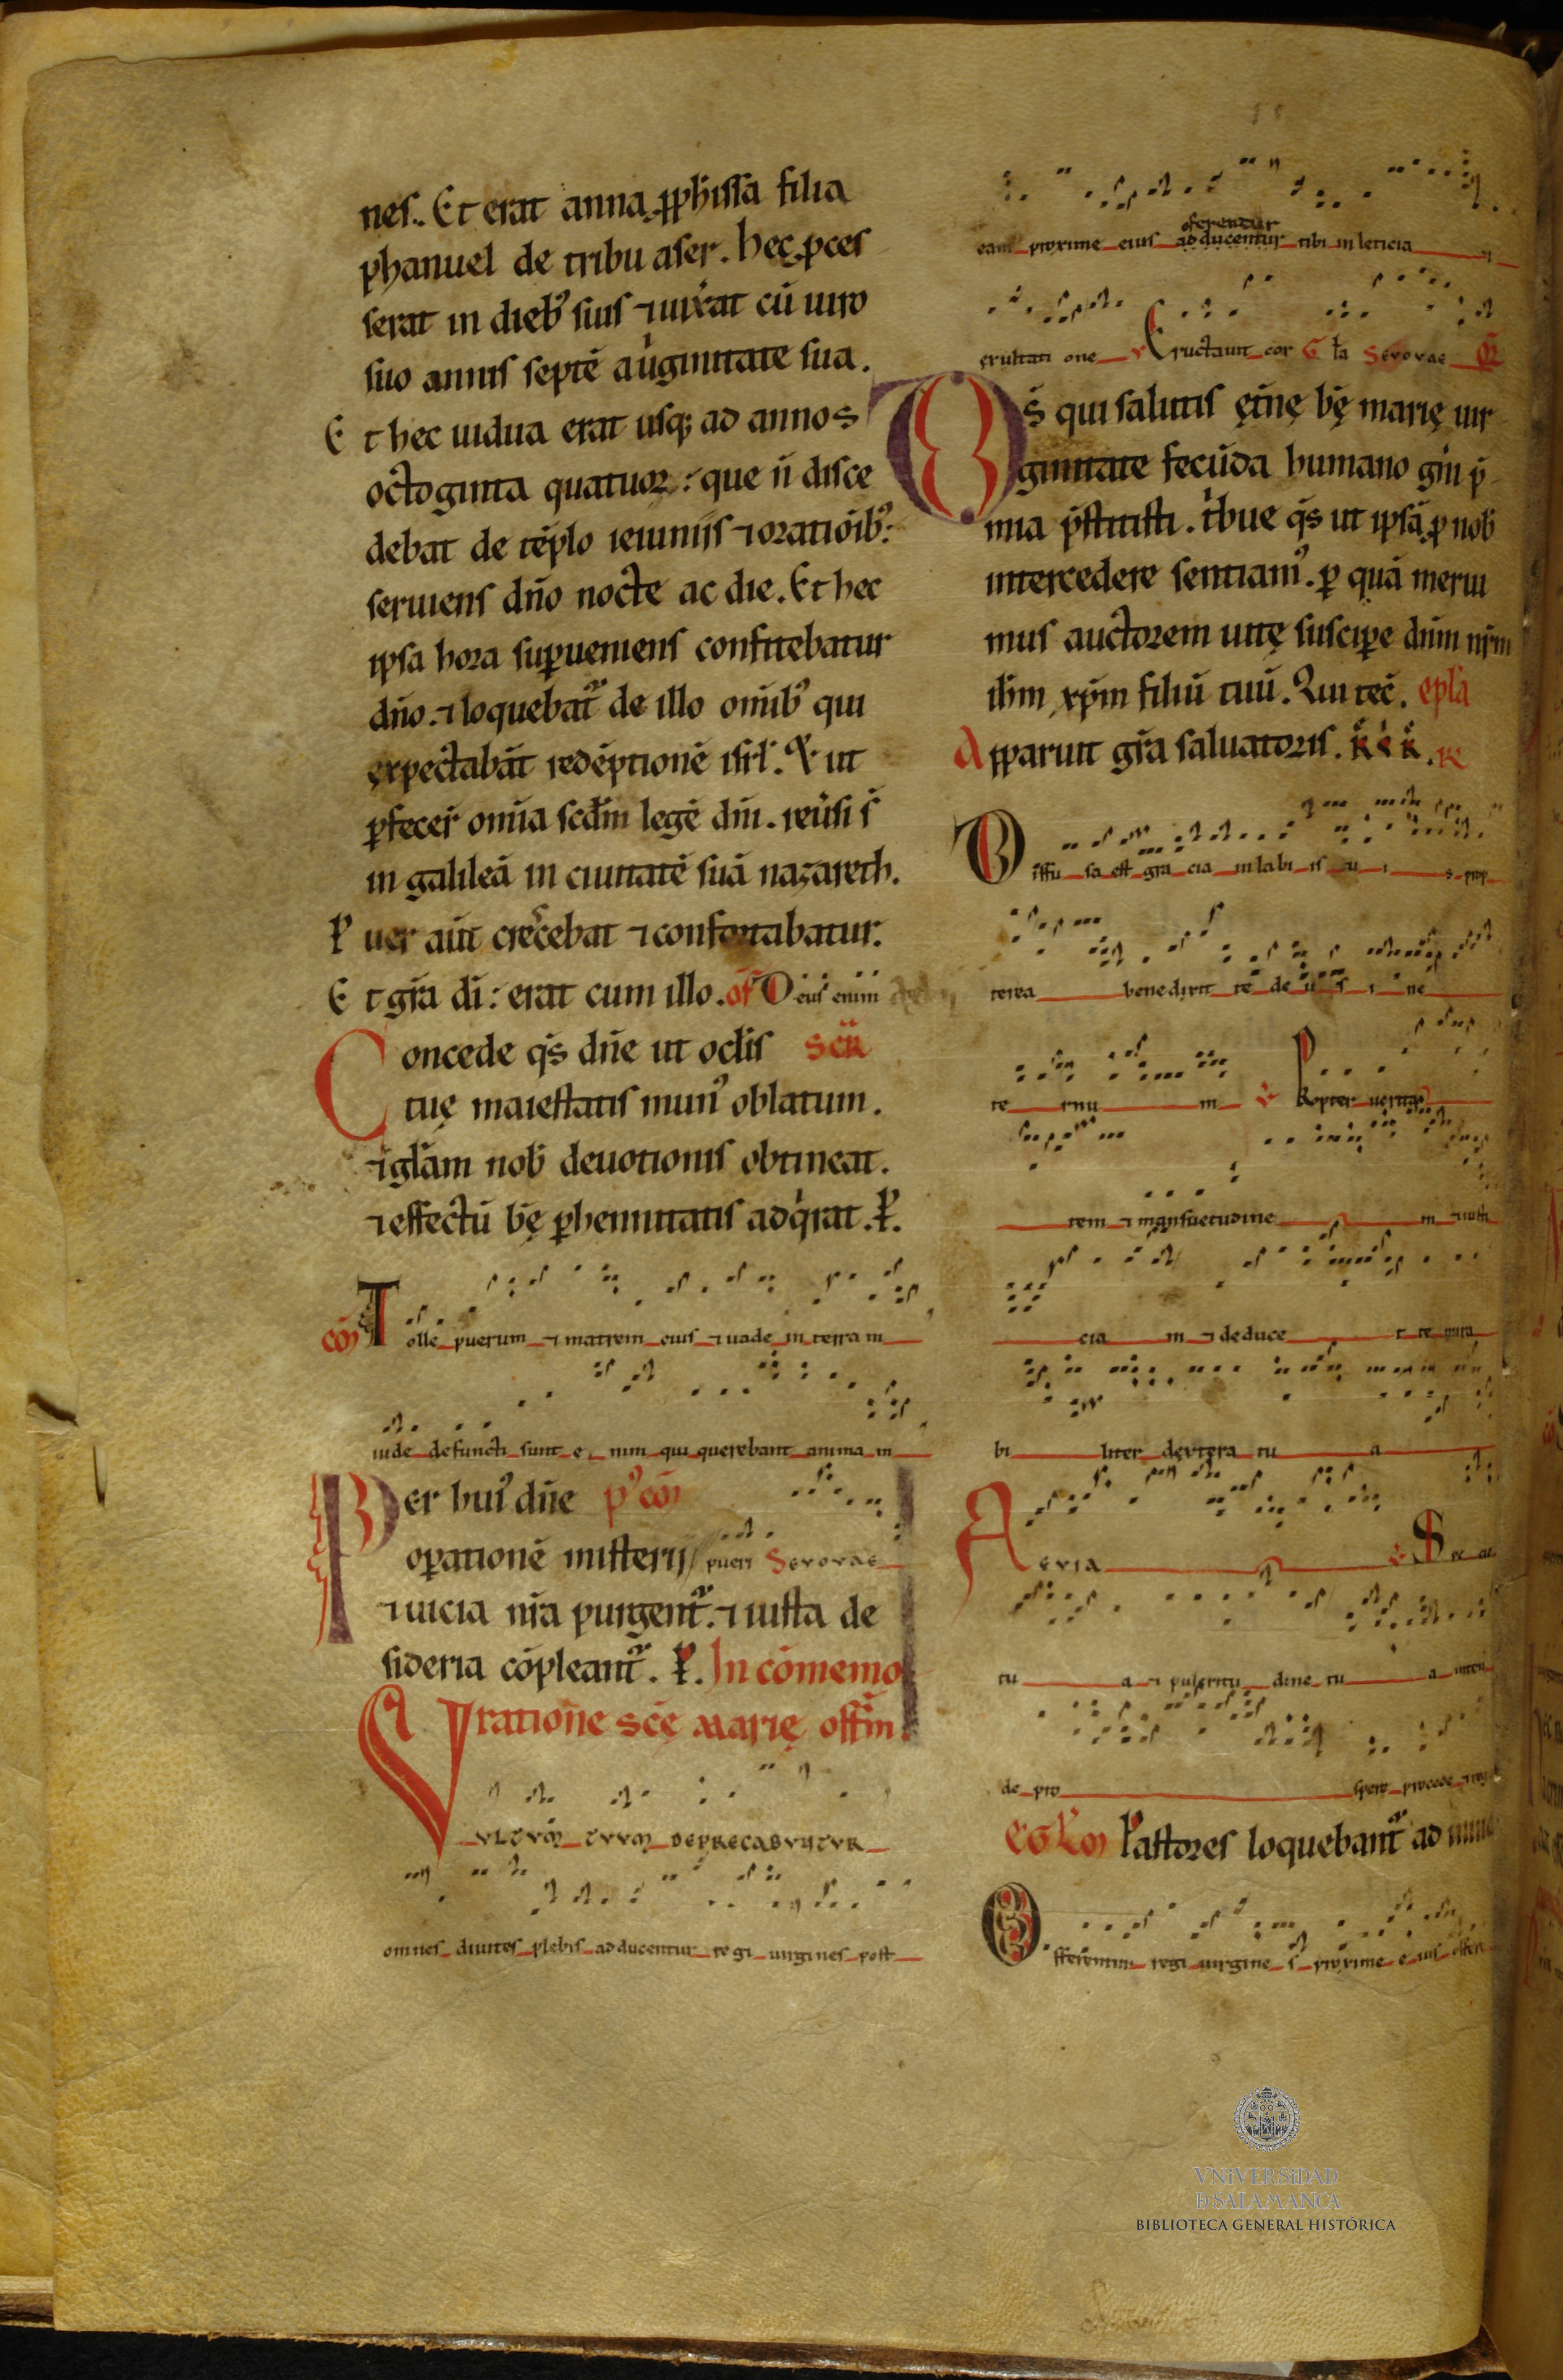 nes. Et erat anna pphissa filia
phanuel de tribu aser. hec pces
serat in dieb; suis ⁊ uixat cū uiro
suo annis septē auginitate sua.
Et hec uidua erat usq; ad annos
octoginta quatuor: que ñ disce
debat de tēplo ieiuniis ⁊ orationib;
seruiens dño nocte ac die. Et hec
ipsa hora supueniens confitebatur
dño. ⁊ loquebat de illo omib; qui
expectabāt redēptionē isrl. Et ut
pfecer omia scdm legē dni. reusi s̄
in galileā in ciuitatē suā nazareth.
Puer aut crescebat ⁊ confortabatur.
Et gra di: erat cum illo. of Deus enim
Concede qs dñe ut oclis scr
tuę maiestatis mun; oblatum.
⁊ glam nob deuotionis obtineat.
⁊ effectū bę phennitatis adqrat. P.
cōm Tolle puerum ⁊ matrem eius ⁊ uade in terra m
iude defuncti sunt e nim qui querebant anima m
Per hui; dñe p; cōm
opationē misterii pueri Sevovae
⁊ uicia nra purgent. ⁊ iusta de
sideria cōpleant. P. In cōmemo
ratione scę Marię offm.
VVLTVM TVVM DEPRECABVNTVR
omnes diuites plebis adducentur regi uirgines post
oferentur
eam proxime eius adducentur tibi in leticia ⁊
exultati one v Eructauit cor G la Sevovae OR
DS qui salutis ętnę bę marię uir
ginitate fecūda humano gni p
mia pstitisti. tbue qs ut ipsā p nob
intercedere sentiam;. p quā merui
mus auctorem uitę suscipe dnm nrm
ihm xpm filiū tuū. Qui tec. epla
Apparuit gra saluatoris. R
Diffu sa est gra cia in labi is tu i s prop
terea benedixit te de u s i ne
te rnu m v Propter uerita
tem ⁊ mansuetudine m ⁊ iusti
cia m ⁊ deduce t te mira
bi liter dextera tu a
Aevia v Spe cie
tu a ⁊ pulcritu dine tu a inten
de pro spere procede ⁊ reg
EGLM Pastores loquebant ad inuic
Offerentur regi uirgine s proxime e ius offere
VNiVERSiDAD
D SALAMANCA
BIBLIOTECA GENERAL HISTÓRICA